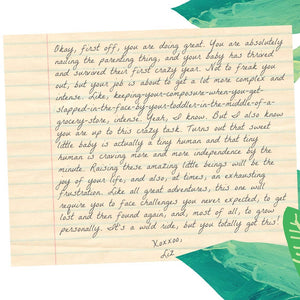 Okay, first off, you are doing great. You are absolutely
nailing the parenting thing, and your baby has thrived
and survived their first crazy year. Not to freak you
out, but your job is about to get a lot more complex and
intense. Like, keeping-your-composure-when-you-get-
slapped-in-the-face-by-your-toddler-in-the-middle-of-a-
grocery-store, intense. Yeah, I know. But I also know
you are up to this crazy task. Turns out that sweet
little baby is actually a tiny human and that tiny
human is craving more and more independence by the
minute. Raising these amazing little beings will be the
joy of your life, and also, at times, an exhausting
frustration. Like all great adventures, this one will
require you to face challenges you never expected, to get
lost and then found again, and, most of all, to grow
personally. It's a wild ride, but you totally got this!
Xoxxoo,
Liz